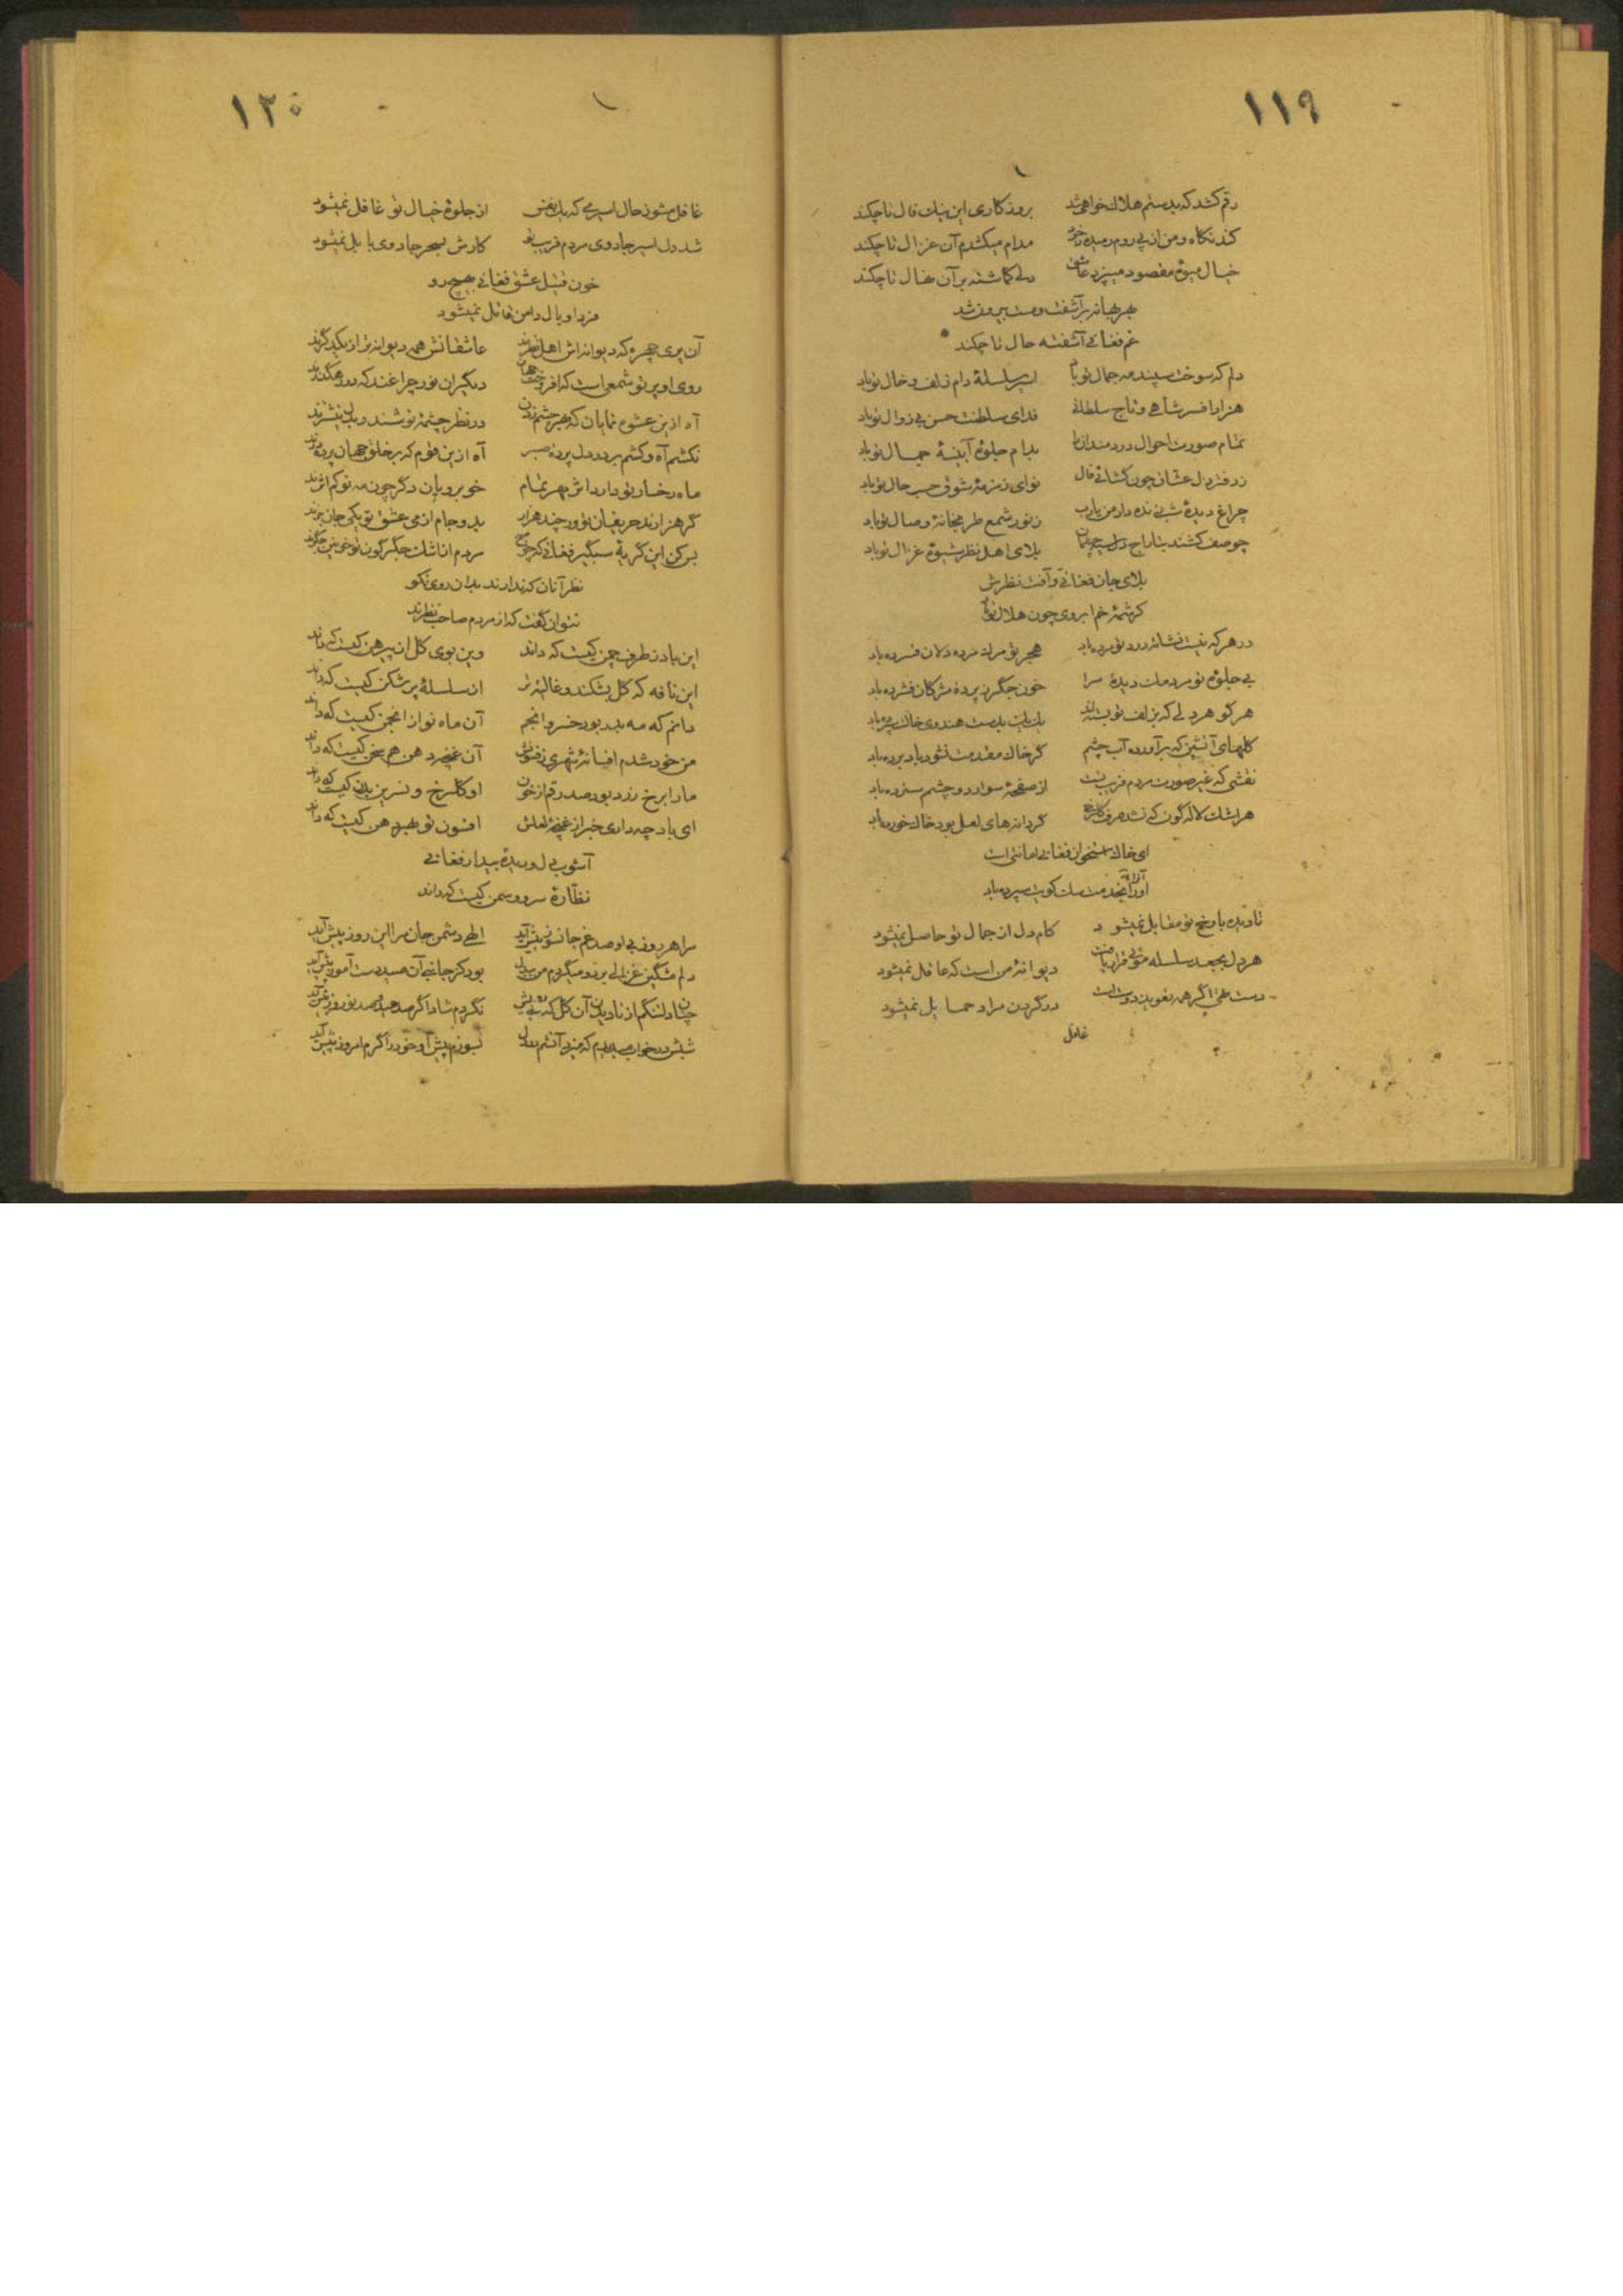 ۱۱۹
رقم کشد که بدستم هلاک خواهی شد بروزکاری این نیک فال تا چکند
کند نکاه و من از پی روم رمیده ز خود مدام میکشدم آن غزال تا چکند
خیال میوهٔ مقصود میپزد عاشق دلی کماشته بر آن نهال تا چکند
بهر بهانه برآشفت و مست بیرون شد
غم فغانی آشفته حال تا چکند
دلم که سوخت سپند مه جمال تو باد اسیر سلسلهٔ دام زلف و خال تو باد
هزار افسر شاهی و تاج سلطانی فدای سلطنت حسن بی زوال تو باد
تمام صورت احوال دردمندانرا مدام جلوهٔ آیینهٔ جمال تو باد
ز دفتر دل عشاق چون کشائی فال نوای زمزمهٔ شوق حسب حال تو باد
چراغ دیدهٔ شب زنده دار من یارب ز نور شمع طربخانهٔ وصال تو باد
چو صف کشند بتاراج دل سیه چشمان بلای اهل نظر شیوهٔ غزال تو باد
بلای جان فغانی و آفت نظرش
کرشمهٔ خم ابروی چون هلال تو باد
در هر که نیست نشانهٔ درد تو مرده باد هجر تو مرک مرده دلان فسرده باد
بی جلوهٔ تو مردمک دیدهٔ مرا خون جکر ز پردهٔ مژکان فشرده باد
هر کو هر دلی که بزلف تو بسته اند یک یک بدست هندوی خاک سپرده باد
کلهای آتشین که برآورده آب چشم کر خاک مقدمت نشود باد برده باد
نقشی که غیر صورت مردم فریب تست از صفحهٔ سواد دو چشم سترده باد
هر اشک لاله کون که نشد صرف کلرخی کر دانه های لعل بود خاک خورده باد
ای خاک استخوان فغانی امانتی است
او را بخدمت سک کویت سپرده باد
تا دیده با رخ تو مقابل نمیشود کام دل از جمال تو حاصل نمیشود
هر دل بجعد سلسله موئی قرار یافت دیوانهٔ من است که عاقل نمیشود
دست علی اکر همه تعویذ دوست است در کردن مراد حمایل نمیشود
غافل
۱۲۰
غافل مشو ز حال اسیری که یک نفس از جلوهٔ خیال تو غافل نمیشود
شد دل اسیر جادوی مردم فریب تو کارش بسحر جادوی بابل نمیشود
خون قتیل عشق فغانی بهیچ رو
مزد و وبال دامن قاتل نمیشود
آن پری چهره که دیوانه اش اهل نظرند عاشقانش همه دیوانه تر از یکدکرند
روی او پرتو شمعی است که افروخت جهان دیکران نور چراغند که در رهکذرند
آه ازین عشوه نمایان که بهر چشم زدن در نظر چشمهٔ نوشند و بدل نیشترند
نکشم آه و کشم بر در دل پردهٔ صبر آه ازین قوم که بر خلق جهان پرده درند
ماه رخسار تو دارد اثر مهر تمام خوبرویان دکر چون مه نو کم اثرند
کر هزارند حریفان تو ور چند هزار بدو جام از می عشق تو یکی جان نبرند
بس کن این کریهٔ شبکیر فغانی که چو شمع مردم از اشک جکرکون تو خونین جکرند
نظر آنان که ندارند بدان روی نکو
نتوان کفت که از مردم صاحب نظرند
این باد ز طرف چمن کیست که داند وین بوی کل از پیرهن کیست که داند
این نافه که کل بشکند و غالیه تر از سلسلهٔ پر شکن کیست که داند
دانم که مه بدر بود خسرو انجم آن ماه نو از انجمن کیست که داند
من خود شدم افسانهٔ شهری ز فنونش آن غنچه دهن هم سخن کیست که داند
ما را برخ زرد بود صد رقم از خون او کلرخ و نسرین بدن کیست که داند
ای باد چه داری خبر از غنچهٔ لعلش افسون تو بهر دهن کیست که داند
آشوب دل و دیدهٔ بیدار فغانی
نظارهٔ سرو و سمن کیست که داند
مرا هر روز بی او صد غم جانسوز پیش آید الهی دشمن جان مرا این روز پیش آید
دلم مشکین غزالی برد و میکردم من بیدل بود کز جانبی آن صید دست آموز پیش آید
چنان دلتنکم از نادیدن آن کل که بی رویش نکردم شاد اکر صد عید و صد نوروز پیش آید
شبش در خواب میدیدم که میزد آتشم در دل بسوزم پیش او خود را اکرم امروز پیش آید